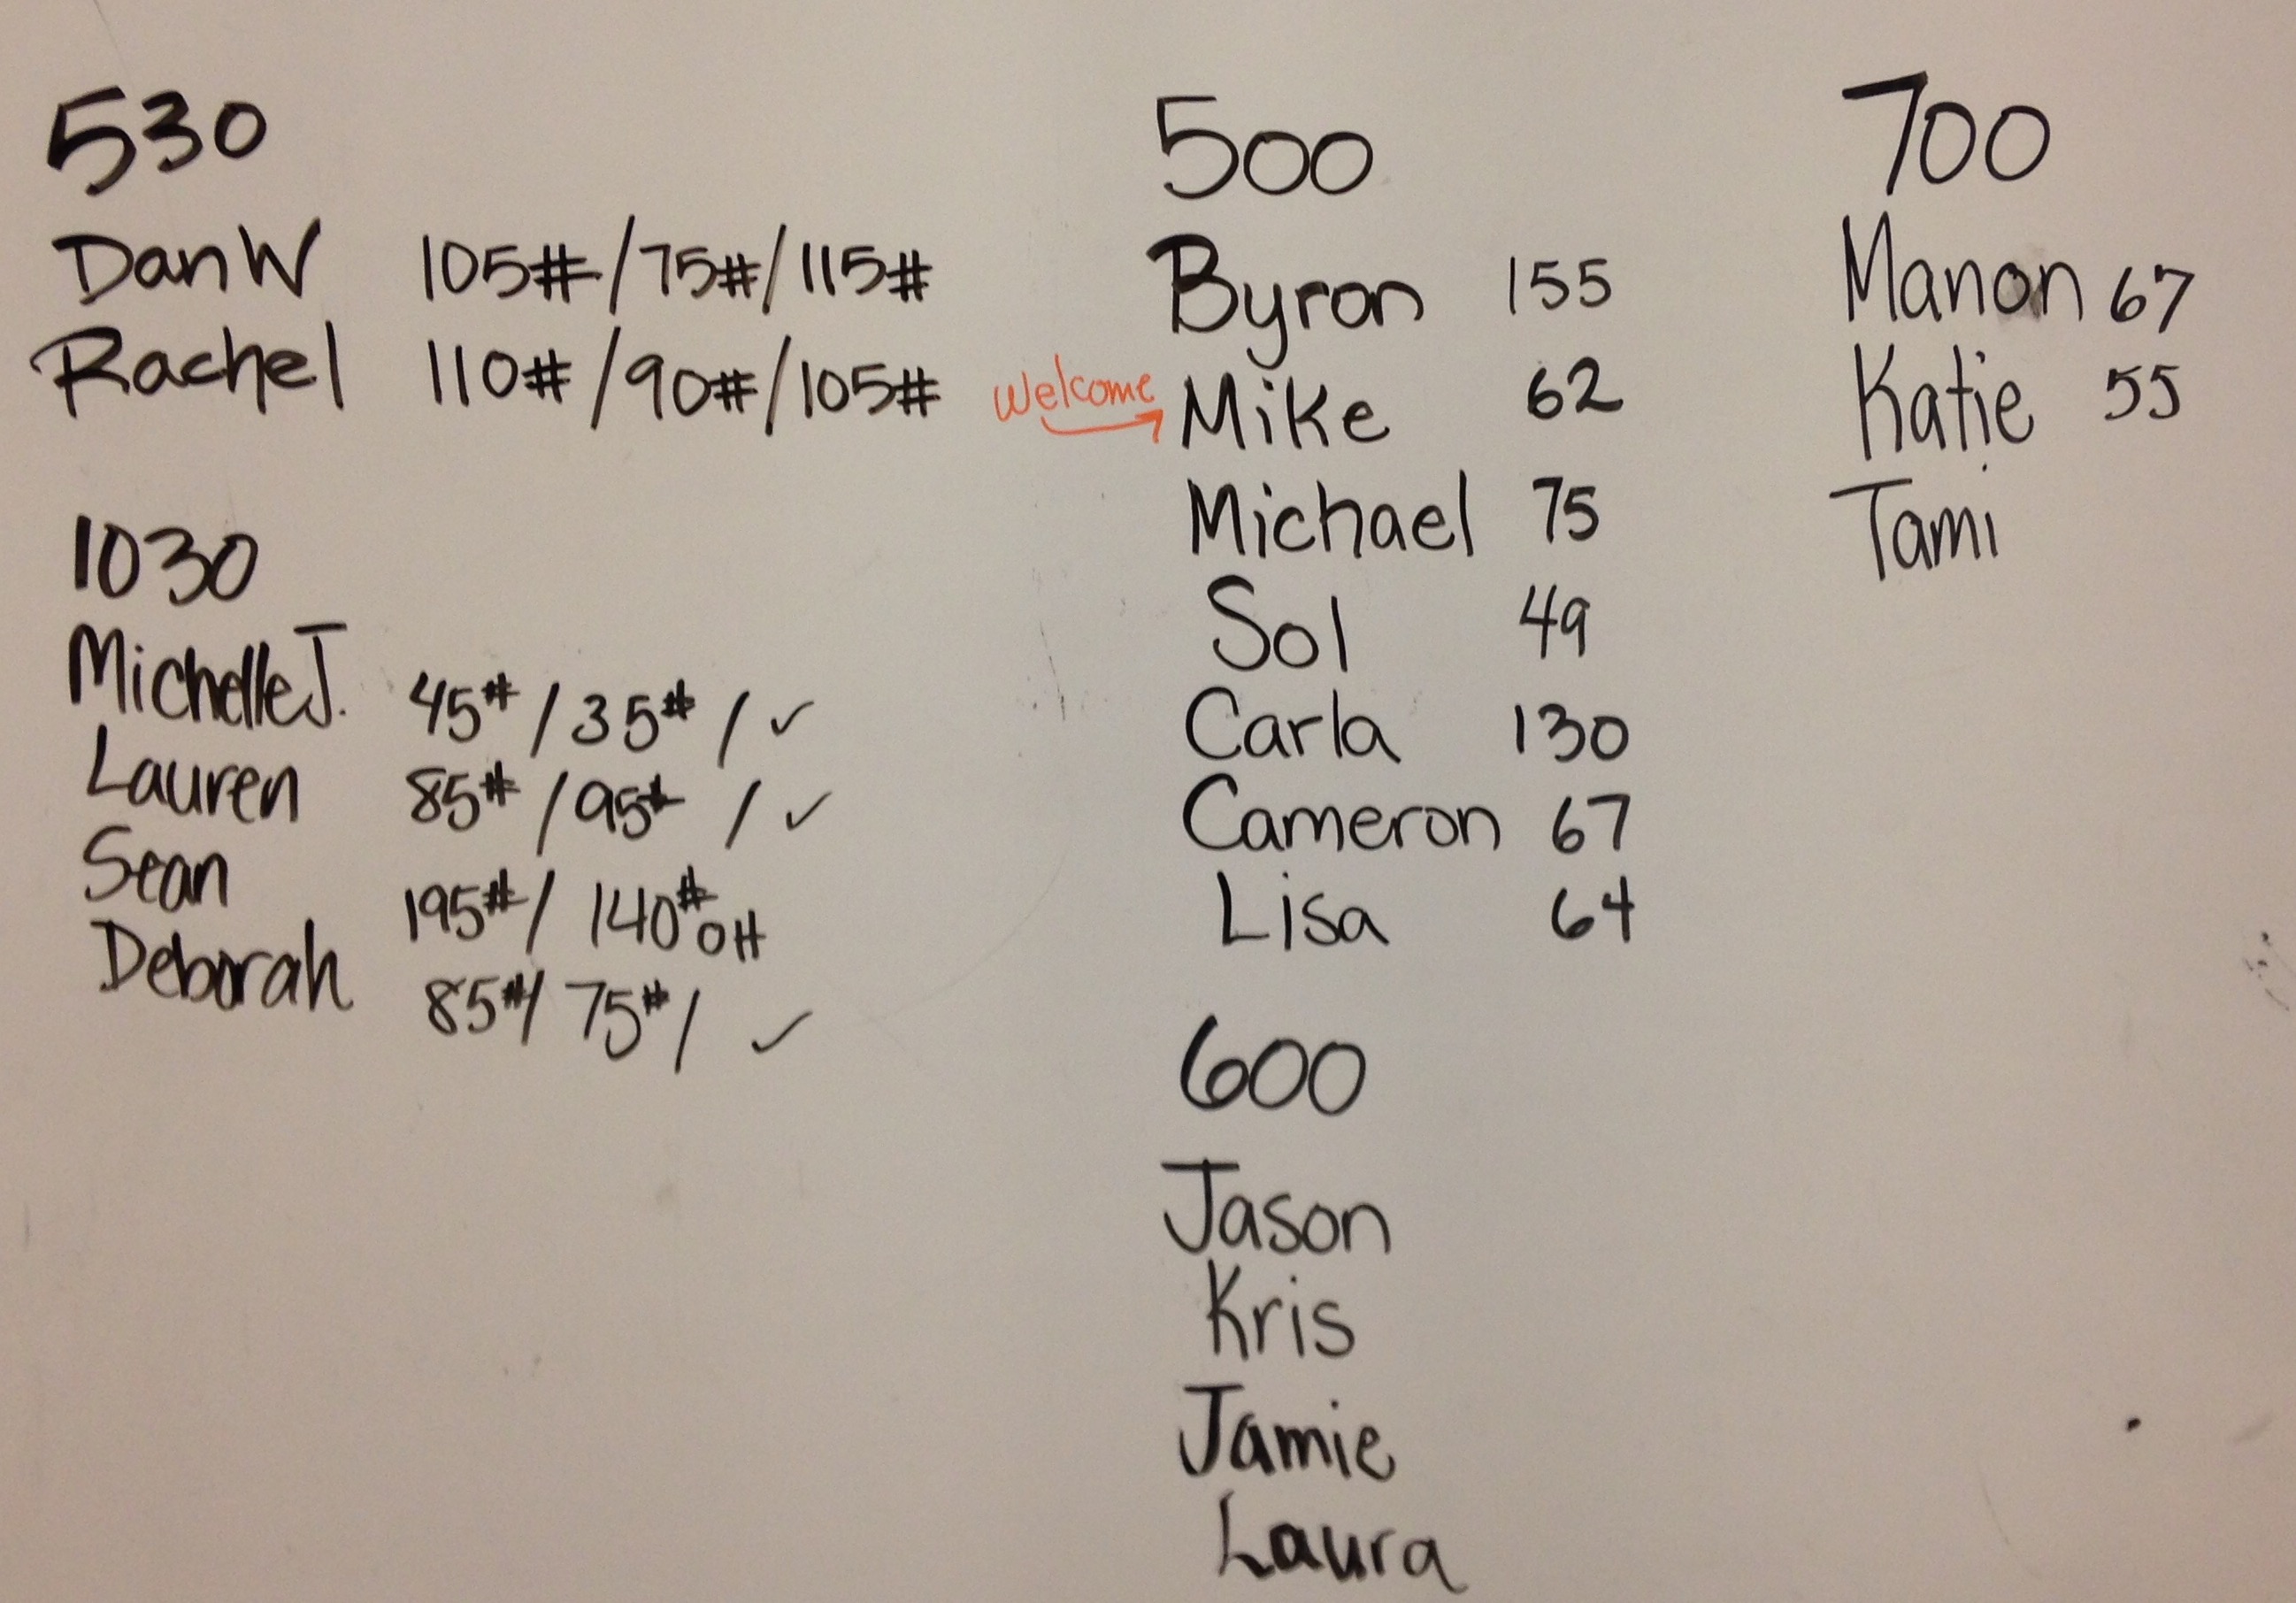 530
Dan W 105# / 75# / 115#
Rachel 110# / 90# / 105#
1030
Michelle J. 45# / 35# / ✓
Lauren 85# / 95# / ✓
Sean 195# / 140# OH
Deborah 85# / 75# / ✓
500
Byron 155
Welcome → Mike 62
Michael 75
Sol 49
Carla 130
Cameron 67
Lisa 64
600
Jason
Kris
Jamie
Laura
700
Manon 67
Katie 55
Tami